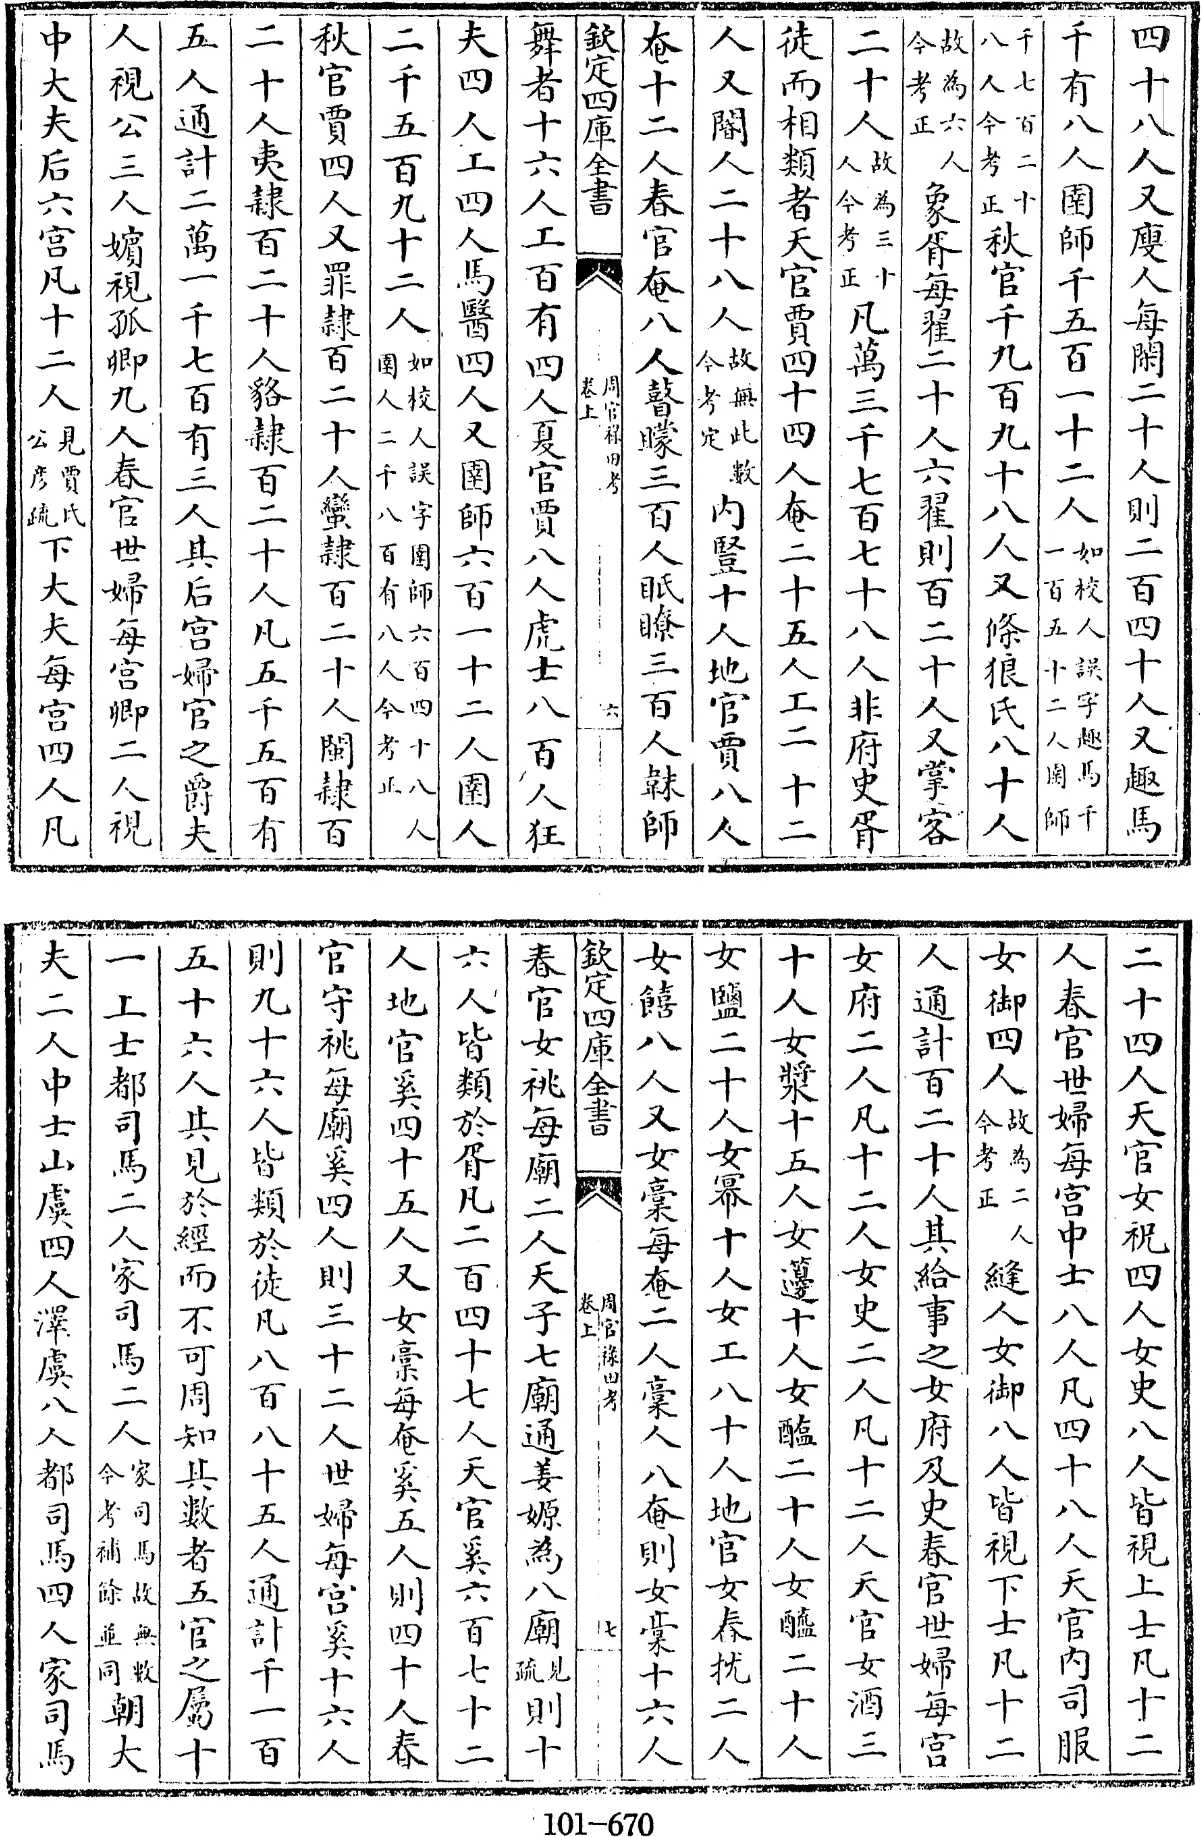 四十八人又廋人每閑二十人則二百四十人又趣馬
千有八人圉師千五百一十二人如校人誤字趣馬千
一百五十二人圉師
千七百二十
八人今考正秋官千九百九十八人又條狼氏八十人
故為六人
今考正象胥每翟二十人六翟則百二十人又掌客
二十人故為三十
人今考正凡萬三千七百七十八人非府史胥
徒而相類者天官賈四十四人奄二十五人工二十二
人又閽人二十八人故無此數
今考定內豎十人地官賈八人
奄十二人春官奄八人瞽矇三百人眡瞭三百人韎師
欽定四庫全書
周官祿田考
卷上
六
舞者十六人工百有四人夏官賈八人虎士八百人狂
夫四人工四人馬醫四人又圉師六百一十二人圉人
二千五百九十二人如校人誤字圉師六百四十八人
圉人二千八百有八人今考正
秋官賈四人又罪隸百二十人蠻隸百二十人閩隸百
二十人夷隸百二十人貉隸百二十人凡五千五百有
五人通計二萬一千七百有三人其后宮婦官之爵夫
人視公三人嬪視孤卿九人春官世婦每宮卿二人視
中大夫后六宮凡十二人見賈氏
公彥疏下大夫每宮四人凡
二十四人天官女祝四人女史八人皆視上士凡十二
人春官世婦每宮中士八人凡四十八人天官內司服
女御四人故為二人
今考正縫人女御八人皆視下士凡十二
人通計百二十人其給事之女府及史春官世婦每宮
女府二人凡十二人女史二人凡十二人天官女酒三
十人女漿十五人女籩十人女醢二十人女醯二十人
女鹽二十人女冪十人女工八十人地官女舂抌二人
女饎八人又女稾每奄二人稾人八奄則女稾十六人
欽定四庫全書
周官祿田考
卷上
七
春官女祧每廟二人天子七廟通姜嫄為八廟見
疏則十
六人皆類於胥凡二百四十七人天官奚六百七十二
人地官奚四十五人又女稾每奄奚五人則四十人春
官守祧每廟奚四人則三十二人世婦每宮奚十六人
則九十六人皆類於徒凡八百八十五人通計千一百
五十六人其見於經而不可周知其數者五官之屬十
一上士都司馬二人家司馬二人家司馬故無數
今考補餘並同朝大
夫二人中士山虞四人澤虞八人都司馬四人家司馬
101-670